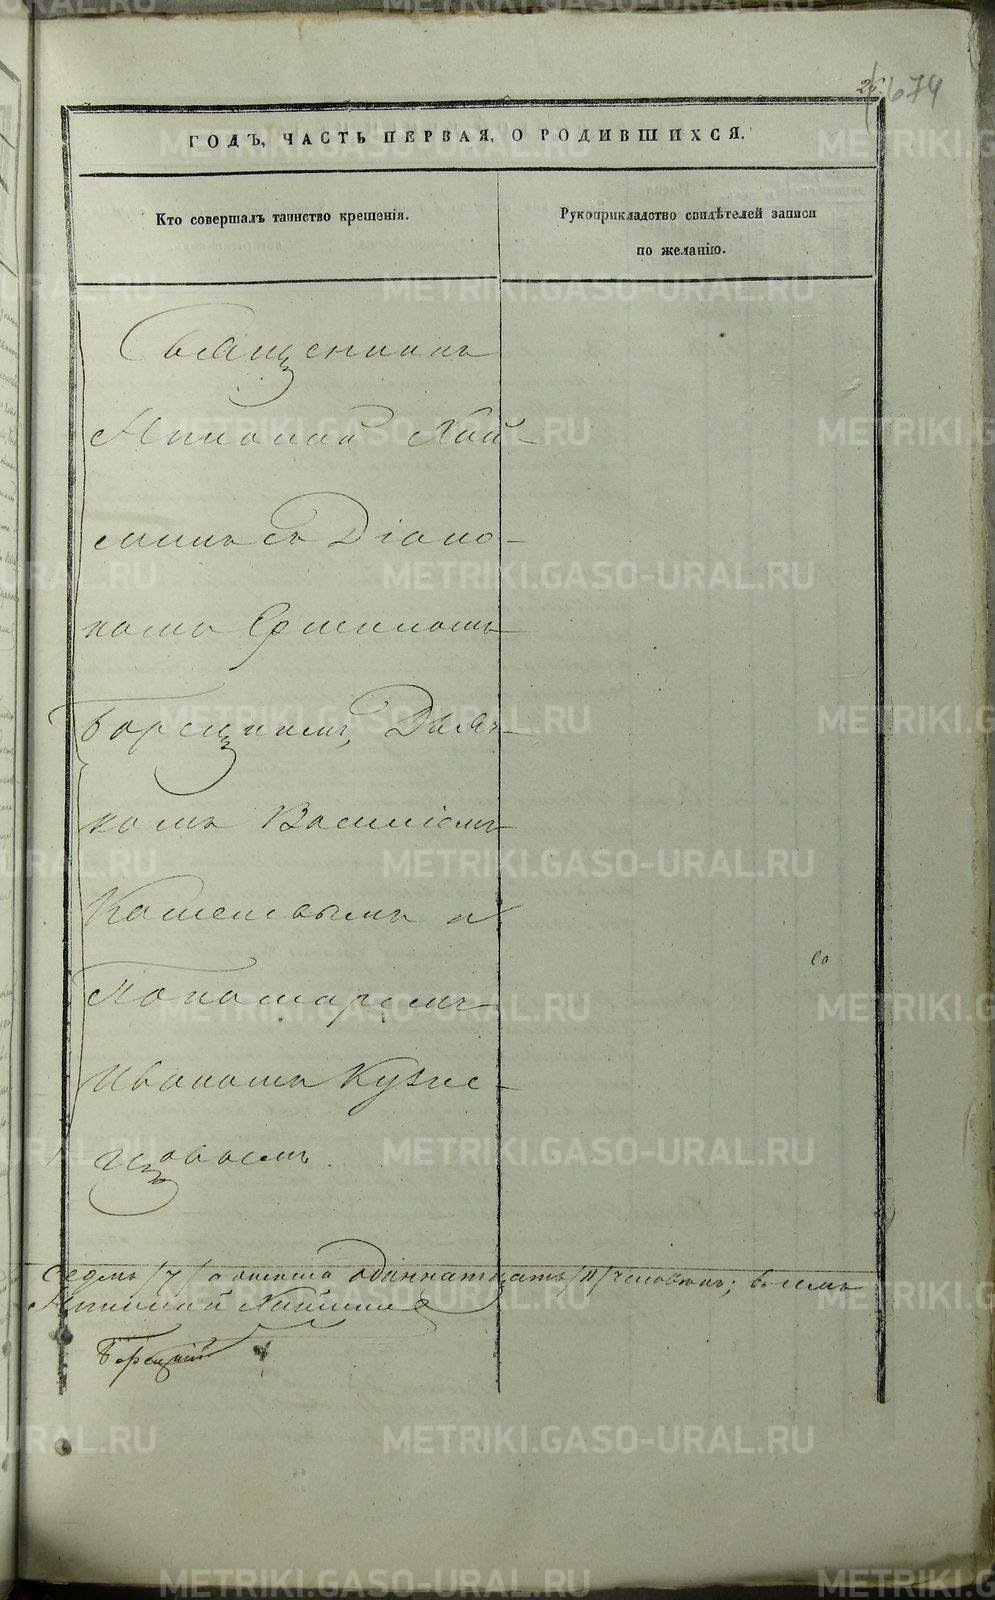 674
ГОДЪ, ЧАСТЬ ПЕРВАЯ, О РОДИВШИХСЯ.
Кто совершалъ таинство крещенія.
Рукоприкладство свидѣтелей записи
по желанію.
Священникъ
Николай Хай-
минъ съ Діако-
номъ
Борецкимъ, Дьяч-
комъ Василіемъ
Кошелевымъ и
Пономаремъ
Иваномъ Кузне-
цовымъ.
седмь /7/ одиннатцать /11/ человѣкъ; въ семъ
Николай Хайминъ
Борецкій
METRIKI.GASO-URAL.RU